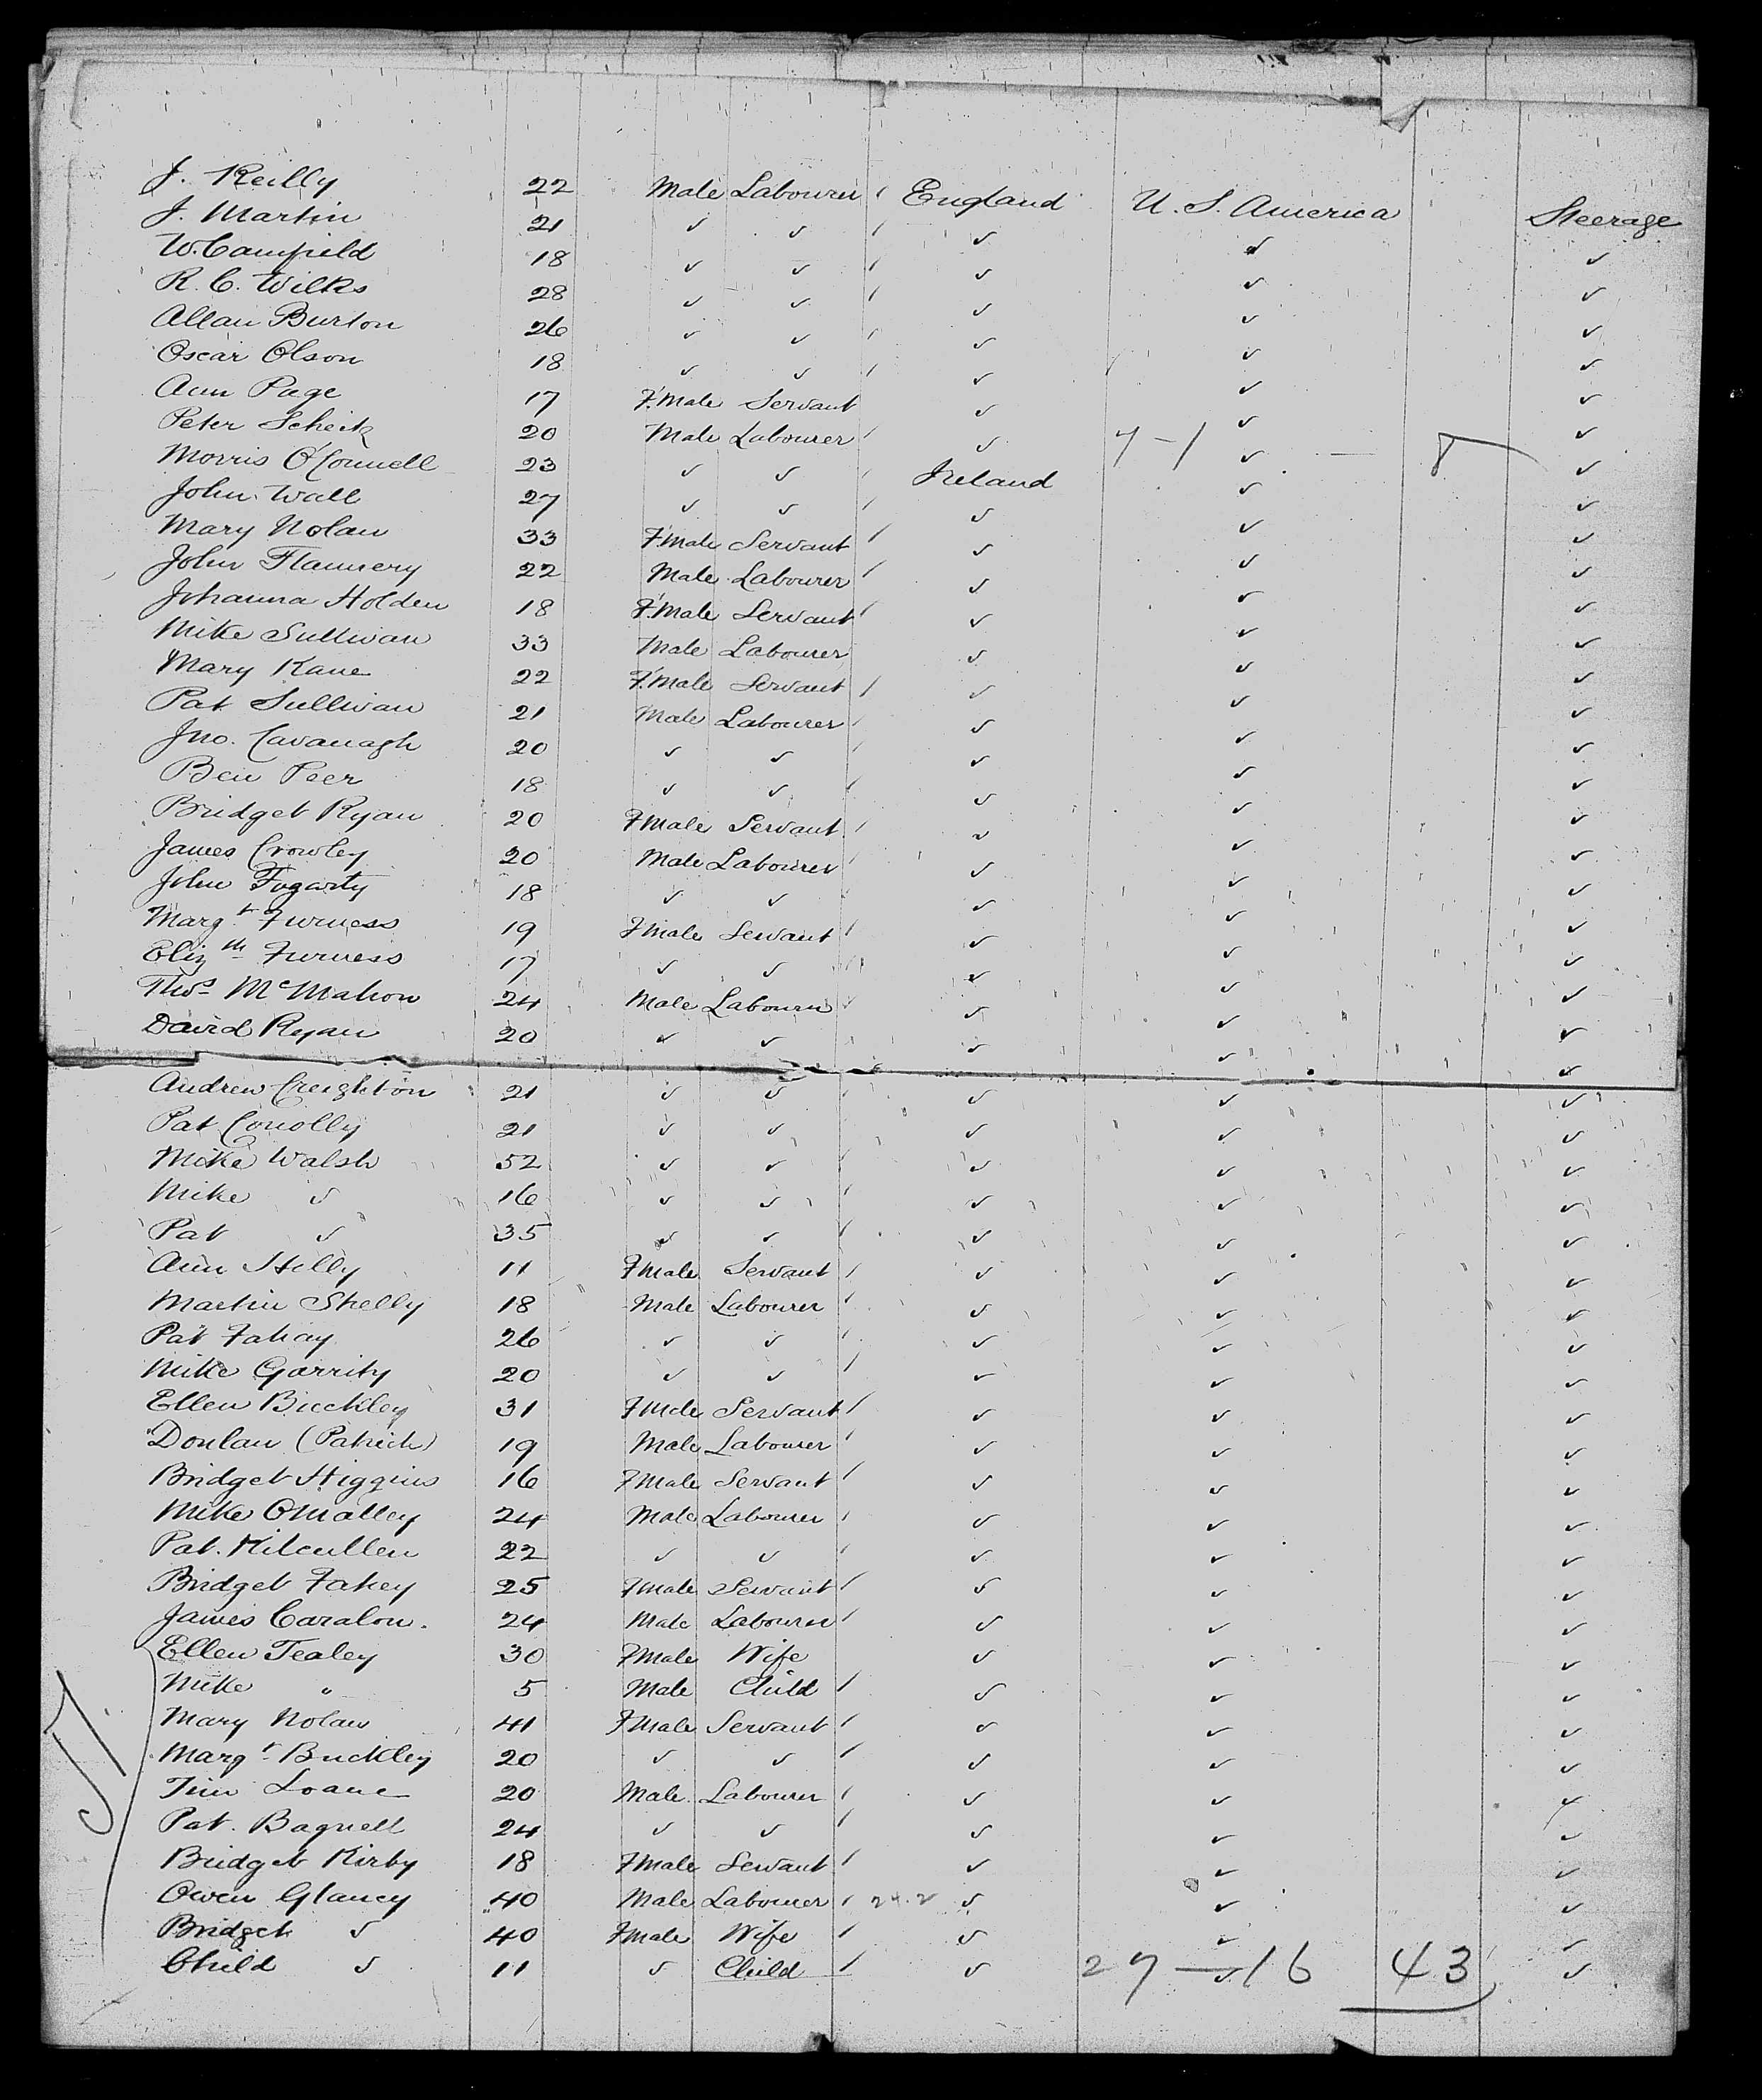 J. Reilly 22 Male Labourer England U. S. America Steerage
J. Martin 21 " " " " "
W. Camfield 18 " " " " "
R. C. Wilks 28 " " " " "
Allan Burton 26 " " " " "
Oscar Olson 18 " " " " "
Ann Page 17 F.Male Servant " " "
Peter Scheik 20 Male Labourer " 7 - 1 " — 8 "
Morris O'Connell 23 " " Ireland " "
John Wall 27 " " " " "
Mary Nolan 33 F.Male Servant " " "
John Flannery 22 Male Labourer " " "
Johanna Holden 18 F.Male Servant " " "
Mike Sullivan 33 Male Labourer " " "
Mary Kane 22 F.Male Servant " " "
Pat Sullivan 21 Male Labourer " " "
Jno. Cavanagh 20 " " " " "
Ben Peer 18 " " " " "
Bridget Ryan 20 FMale Servant " " "
James Crowley 20 Male Labourer " " "
John Fogarty 18 " " " " "
Margt Furness 19 FMale Servant " " "
Elizth Furness 17 " " " " "
Thos McMahon 24 Male Labourer " " "
David Ryan 20 " " " " "
Andrew Creighton 21 " " " " "
Pat Conolly 21 " " " " "
Mike Walsh 52 " " " " "
Mike " 16 " " " " "
Pat " 35 " " " " "
Ann Hilly 11 FMale Servant " " "
Martin Shelly 18 Male Labourer " " "
Pat Fahay 26 " " " " "
Mike Garrity 20 " " " " "
Ellen Buckley 31 FMale Servant " " "
Donlan (Patrick) 19 Male Labourer " " "
Bridget Higgins 16 FMale Servant " " "
Mike OMalley 24 Male Labourer " " "
Pat. Kilcullen 22 " " " " "
Bridget Fahey 25 FMale Servant " " "
James Caralon. 24 Male Labourer " " "
Ellen Tealey 30 FMale Wife " " "
Mike " 5 Male Child " " "
Mary Nolan 41 FMale Servant " " "
Margt Buckley 20 " " " " "
Tim Loane 20 Male Labourer " " "
Pat. Bagnell 24 " " " " "
Bridget Kirby 18 FMale Servant " " "
Owen Glancy 40 Male Labourer " " "
Bridget " 40 FMale Wife " " "
Child " 11 " Child " 27 — 16 43 "